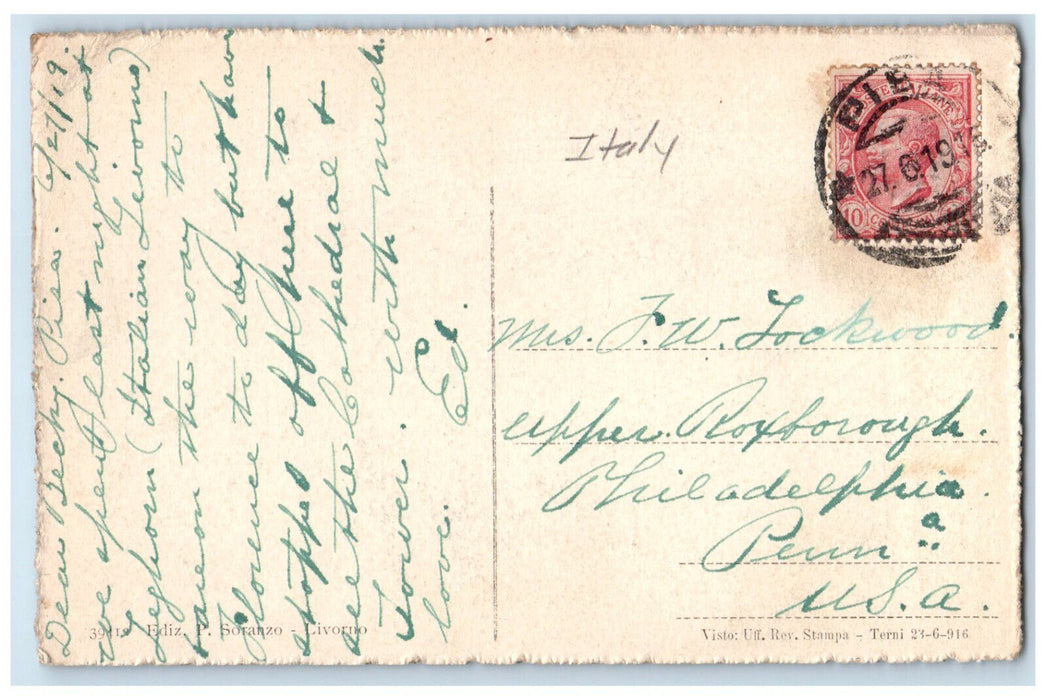 Dear Becky. Pisa. 6/27/19.
We spent last night at
Leghorn (Italian Livorno)
are on the way to
Florence to day but have
stopped off here to
see the Cathedral &
Tower. with much
love. Ed.
Italy
PISA
27.6.19
10
Mrs. F. W. Lockwood.
Upper Roxborough.
Philadelphia.
Penna
U.S.A.
Ediz. P. Soranzo - Livorno
Visto: Uff. Rev. Stampa - Terni 23-6-916